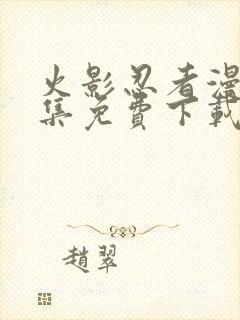 火影忍者漫
集免費下載
趙翠